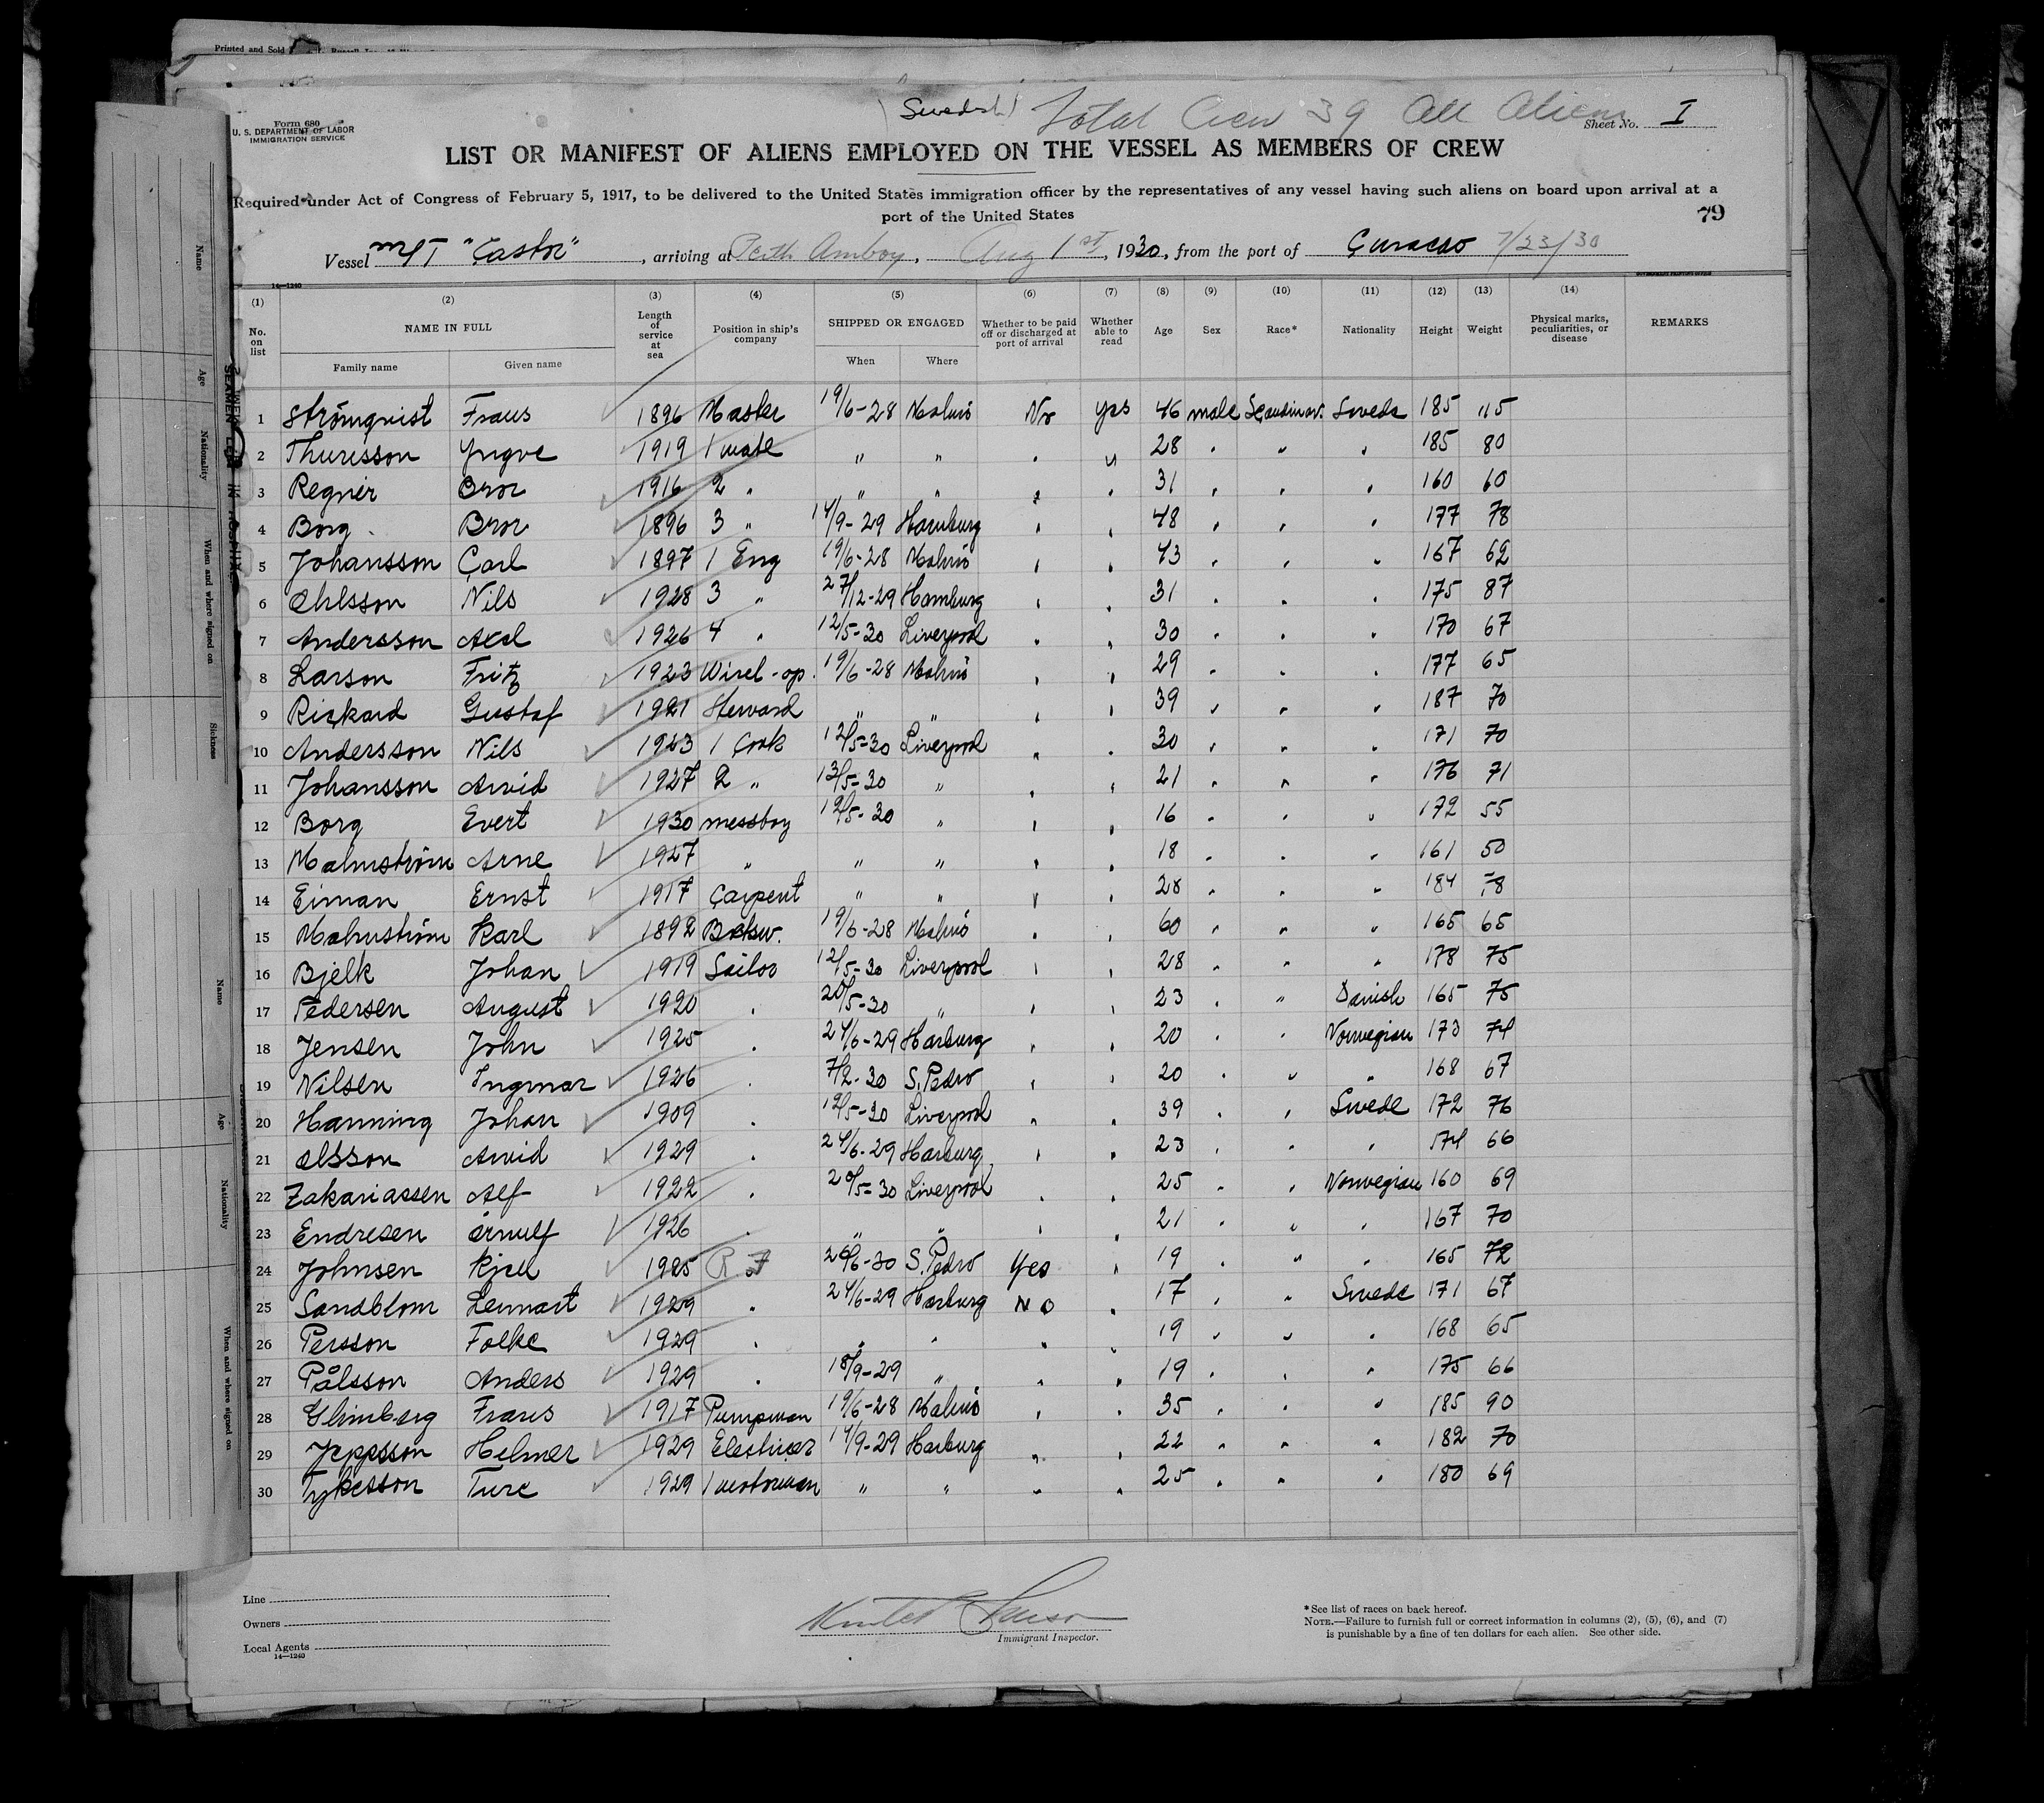 Printed and Sold
Form 680
U. S. DEPARTMENT OF LABOR
IMMIGRATION SERVICE
(Swedish) Total Crew 39 All Aliens
Sheet No. I
LIST OR MANIFEST OF ALIENS EMPLOYED ON THE VESSEL AS MEMBERS OF CREW
Required under Act of Congress of February 5, 1917, to be delivered to the United States immigration officer by the representatives of any vessel having such aliens on board upon arrival at a
port of the United States
79
Vessel M/T "Castor", arriving at Perth Amboy, Aug 1st, 1930, from the port of Curacao 7/23/30
14—1240
(1) (2) (3) (4) (5) (6) (7) (8) (9) (10) (11) (12) (13) (14)
No. on list NAME IN FULL Length of service at sea Position in ship's company SHIPPED OR ENGAGED Whether to be paid off or discharged at port of arrival Whether able to read Age Sex Race* Nationality Height Weight Physical marks, peculiarities, or disease REMARKS
Family name Given name When Where
1 Strömqvist Frans 1896 Master 19/6-28 Malmö No yes 46 male Scandinav. Swede 185 115
2 Thuresson Yngve 1919 1 mate " " " " 28 " " " 185 80
3 Regnér Bror 1916 2 " " " " " 31 " " " 160 60
4 Borg Bror 1896 3 " 14/9-29 Hamburg " " 48 " " " 177 78
5 Johansson Carl 1897 1 Eng 19/6-28 Malmö " " 43 " " " 167 62
6 Ohlsson Nils 1928 3 " 27/12-29 Hamburg " " 31 " " " 175 87
7 Andersson Axel 1926 4 " 12/5-30 Liverpool " " 30 " " " 170 67
8 Larson Fritz 1923 Wirel-op. 19/6-28 Malmö " " 29 " " " 177 65
9 Rickard Gustaf 1921 Steward " " " " 39 " " " 187 70
10 Andersson Nils 1923 1 Cook 12/5-30 Liverpool " " 30 " " " 171 70
11 Johansson Arvid 1927 2 " 13/5-30 " " " 21 " " " 176 71
12 Borg Evert 1930 messboy 12/5-30 " " " 16 " " " 172 55
13 Malmström Arne 1927 " " " " " 18 " " " 161 50
14 Eiman Ernst 1917 Carpent " " " " 28 " " " 184 78
15 Malmström Karl 1892 Botsw. 19/6-28 Malmö " " 60 " " " 165 65
16 Bjelk Johan 1919 Sailor 12/5-30 Liverpool " " 28 " " " 178 75
17 Pedersen August 1920 " 20/5-30 " " " 23 " " Danish 165 75
18 Jensen John 1925 " 24/6-29 Harburg " " 20 " " Norwegian 173 74
19 Nilsen Ingmar 1926 " 7/2-30 S. Pedro " " 20 " " " 168 67
20 Hanning Johan 1909 " 12/5-30 Liverpool " " 39 " " Swede 172 76
21 Olsson Arvid 1929 " 24/6-29 Harburg " " 23 " " " 174 66
22 Zakariassen Alf 1922 " 20/5-30 Liverpool " " 25 " " Norwegian 160 69
23 Endresen Arnulf 1926 " " " " " 21 " " " 167 70
24 Johnsen Kjell 1925 26/6-30 S. Pedro Yes " 19 " " " 165 72
25 Sandblom Lennart 1929 " 24/6-29 Harburg NO " 17 " " Swede 171 67
26 Persson Folke 1929 " " " " " 19 " " " 168 65
27 Pålsson Anders 1929 " 18/9-29 " " " 19 " " " 175 66
28 Glimberg Frans 1917 Pumpman 19/6-28 Malmö " " 35 " " " 185 90
29 Jeppsson Helmer 1929 Electricer 14/9-29 Harburg " " 22 " " " 182 70
30 Tykesson Ture 1929 1 motorman " " " " 25 " " " 180 69
Line
Owners
Local Agents
14—1240
Immigrant Inspector.
*See list of races on back hereof.
NOTE.—Failure to furnish full or correct information in columns (2), (5), (6), and (7)
is punishable by a fine of ten dollars for each alien. See other side.
Name
Age
Nationality
When and where signed on
Sickness
Name
Age
Nationality
When and where signed on